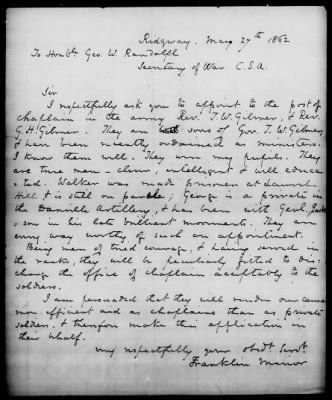 Ridgway. May 27th 1862
To Honble Geo. W. Randolph
Secretary of War C.S.A.
Sir
I respectfully ask you to appoint to the post of
chaplain in the army Rev. T. W. Gilmer, & Rev.
G. H. Gilmer. They are sons of Gov. T. W. Gilmer,
& have been recently ordained as ministers.
I know them well. They were my pupils. They
are true men - clever, intelligent & well educa-
ted. Walker was made prisoner at Laurel
Hill & is still on parole; George is a private in
the Danville Artillery, & has been with Genl. Jack-
son in his late brilliant movements. They are
every way worthy of such an appointment.
Being men of tried courage, & having served in
the ranks, they will be peculiarly fitted to dis-
charge the office of chaplain acceptably to the
soldiers.
I am persuaded that they will render our cause
more efficient aid as chaplains than as private
soldiers, & therefore make this application in
their behalf.
very respectfully your obdt. Servt.
Franklin Minor